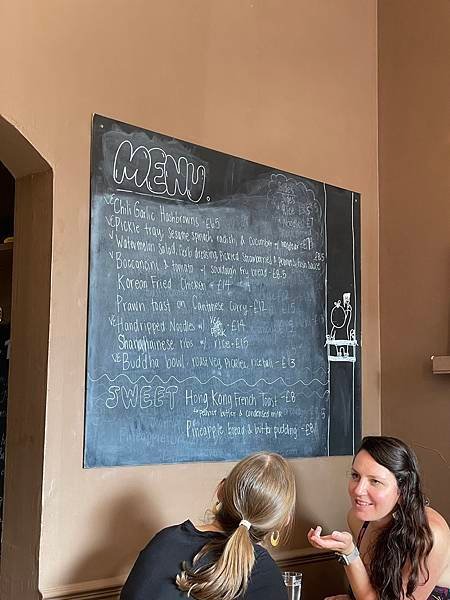 MENU.
VE Chili Garlic Hashbrowns - £6.5
VE Pickle tray, sesame spinach, radish & cucumber w/ - £7
Watermelon Salad, herb dressing, Pickled Strawberries & £8.5
V Bocconcini & tomato w/ sourdough fry bread - £8.5
Korean Fried Chicken - £14
Prawn toast on Cantonese Curry - £12
VE Handripped Noodles w/ - £14
Shanghainese ribs w/ rice - £15
VE Buddha bowl - roast veg, Pickles, rice ball - £13
SWEET Hong Kong French Toast - £8
w/ peanut butter & condensed milk
Pineapple bread & butter pudding - £8
Rice £3.5
Noodles